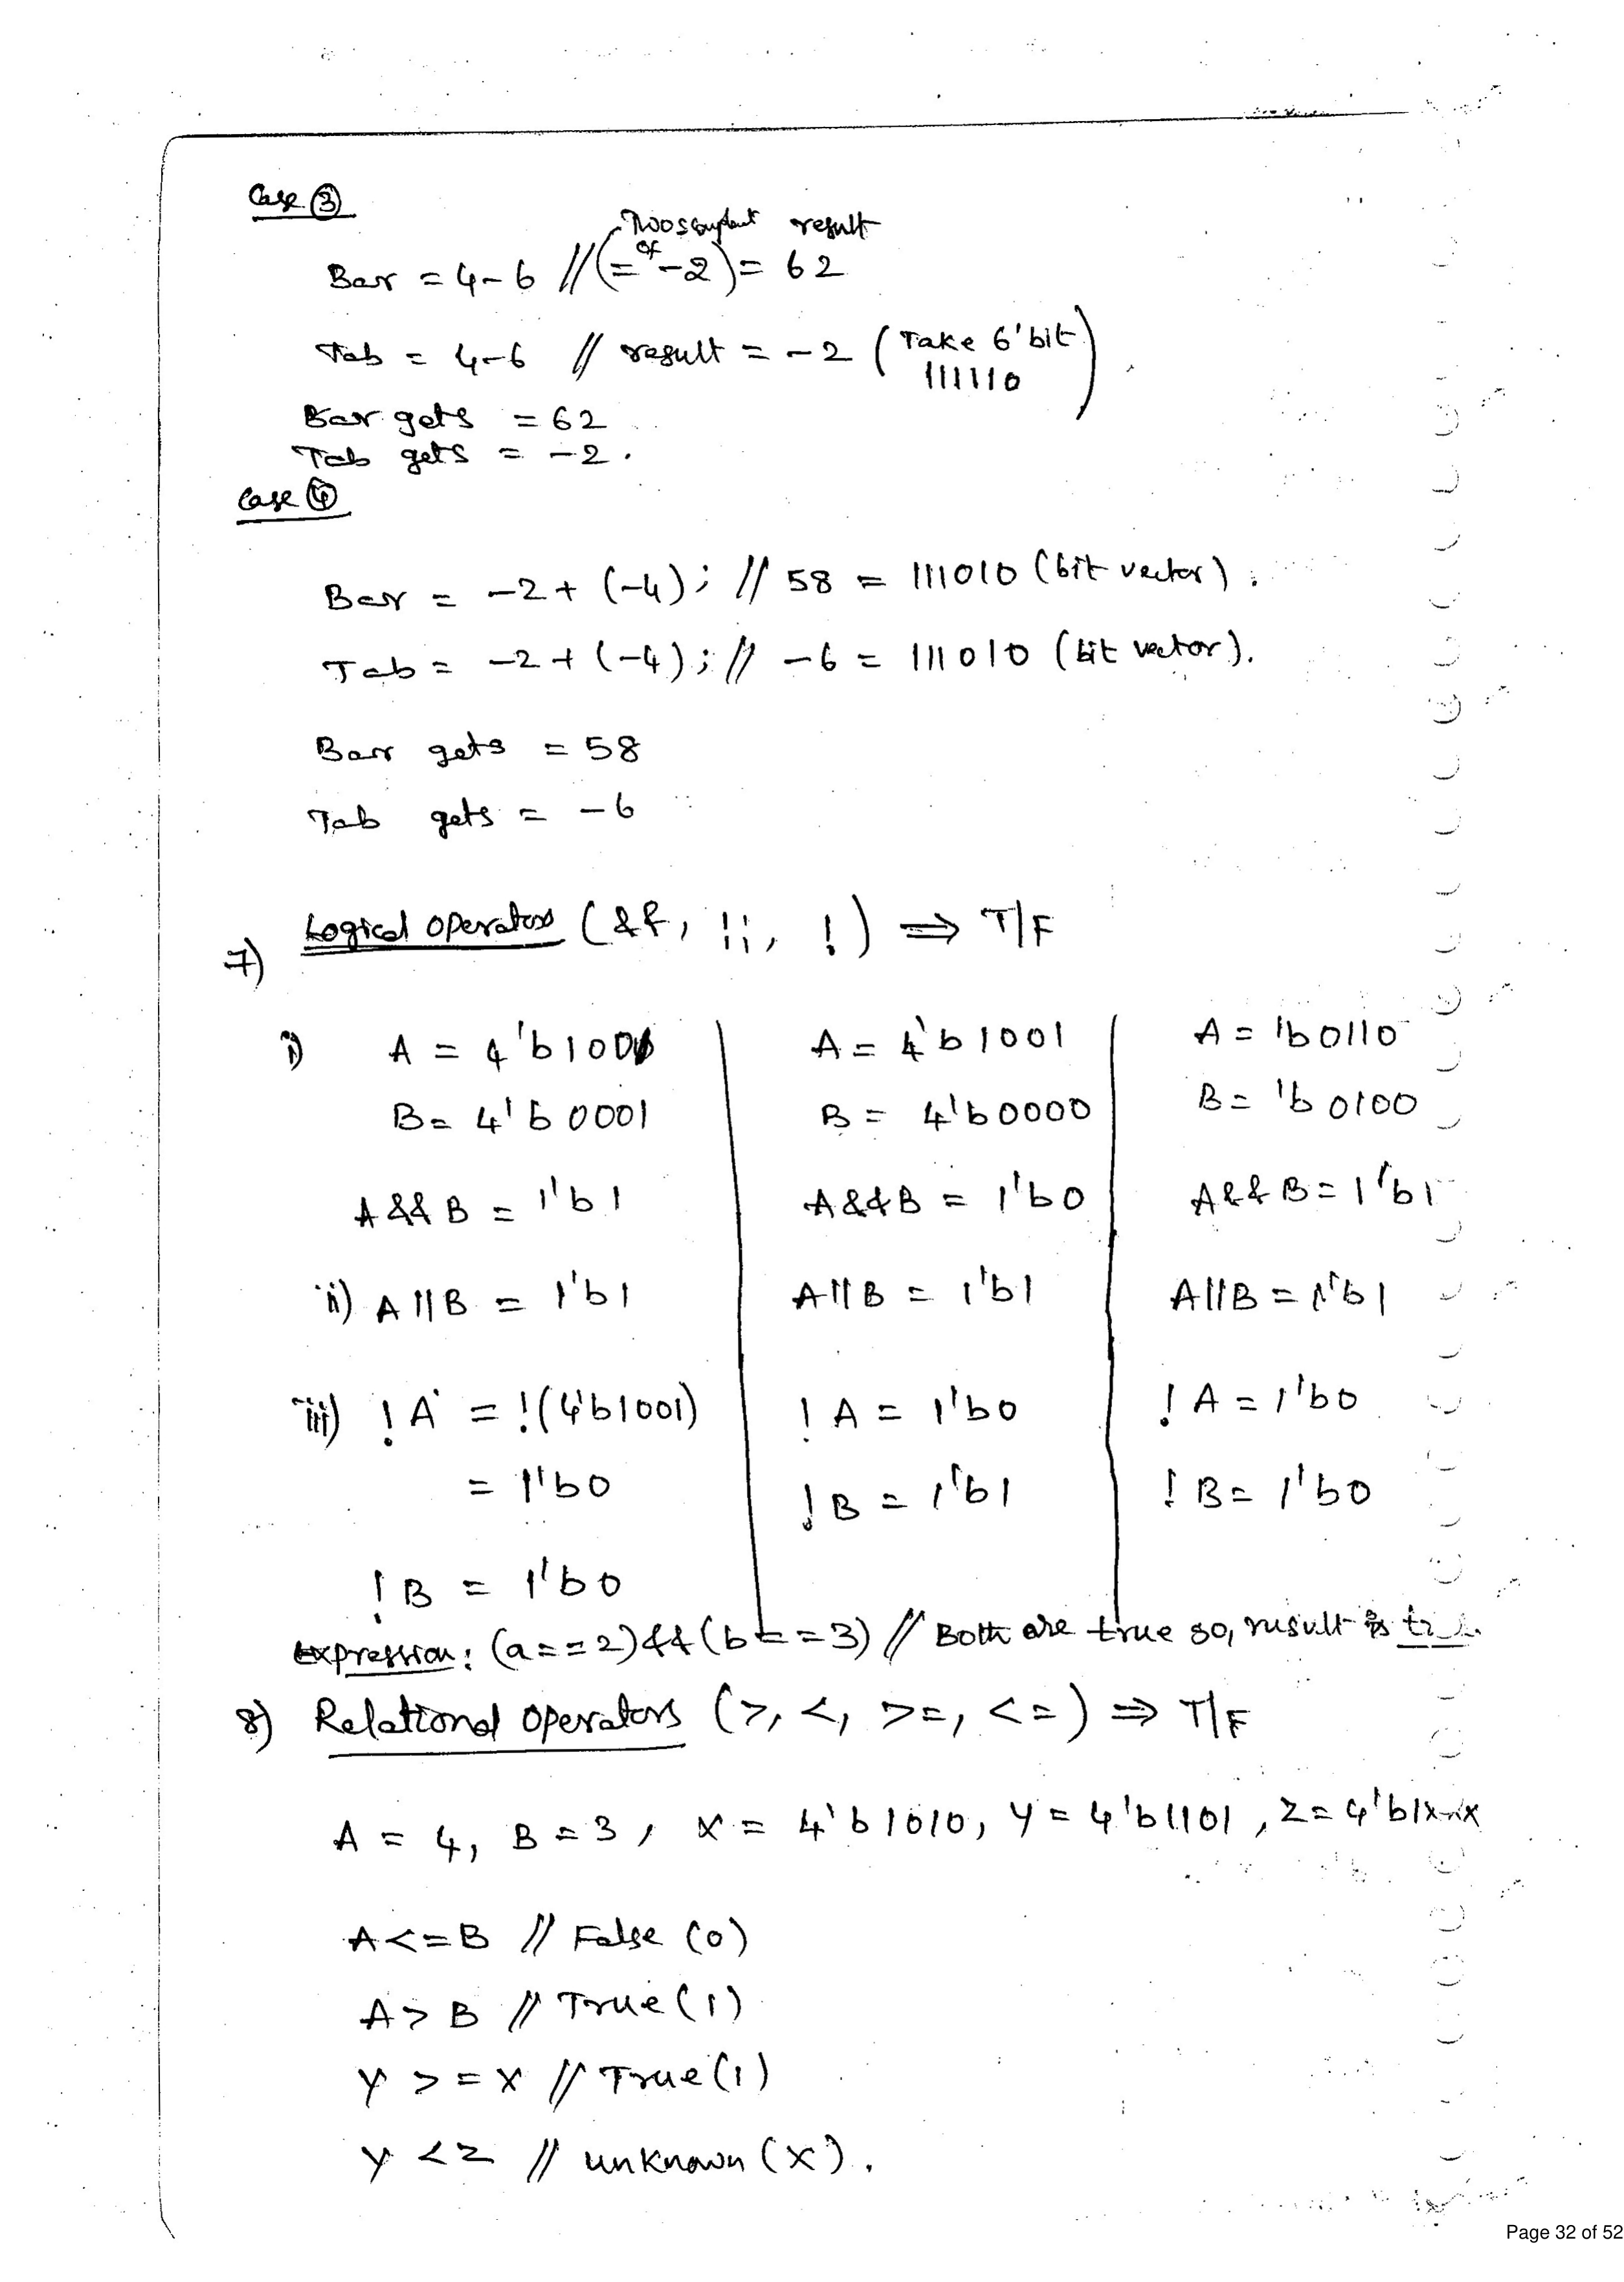 Case ③
Twos complement result
of
Bar = 4-6 // (= -2) = 62
Tab = 4-6 // result = -2 (Take 6'bit
111110)
Bar gets = 62
Tab gets = -2.
Case ④
Bar = -2 + (-4); // 58 = 111010 (bit vector).
Tab = -2 + (-4); // -6 = 111010 (bit vector).
Bar gets = 58
Tab gets = -6
7) Logical Operators (&&, ||, !) ⇒ T/F
i) A = 4'b1001 A = 4'b1001 A = 'b0110
B = 4'b0001 B = 4'b0000 B = 'b0100
A && B = 1'b1 A&&B = 1'b0 A&&B = 1'b1
ii) A || B = 1'b1 A||B = 1'b1 A||B = 1'b1
iii) !A = !(4'b1001) !A = 1'b0 !A = 1'b0
= 1'b0 !B = 1'b1 !B = 1'b0
!B = 1'b0
Expression: (a==2)&&(b==3) // Both are true so, result is
8) Relational Operators (>, <, >=, <=) ⇒ T/F
A = 4, B = 3, X = 4'b1010, Y = 4'b1101, Z = 4'b1xxx
A<=B // False (0)
A>B // True(1)
Y >= X // True(1)
Y < Z // unknown (X).
Page 32 of 52